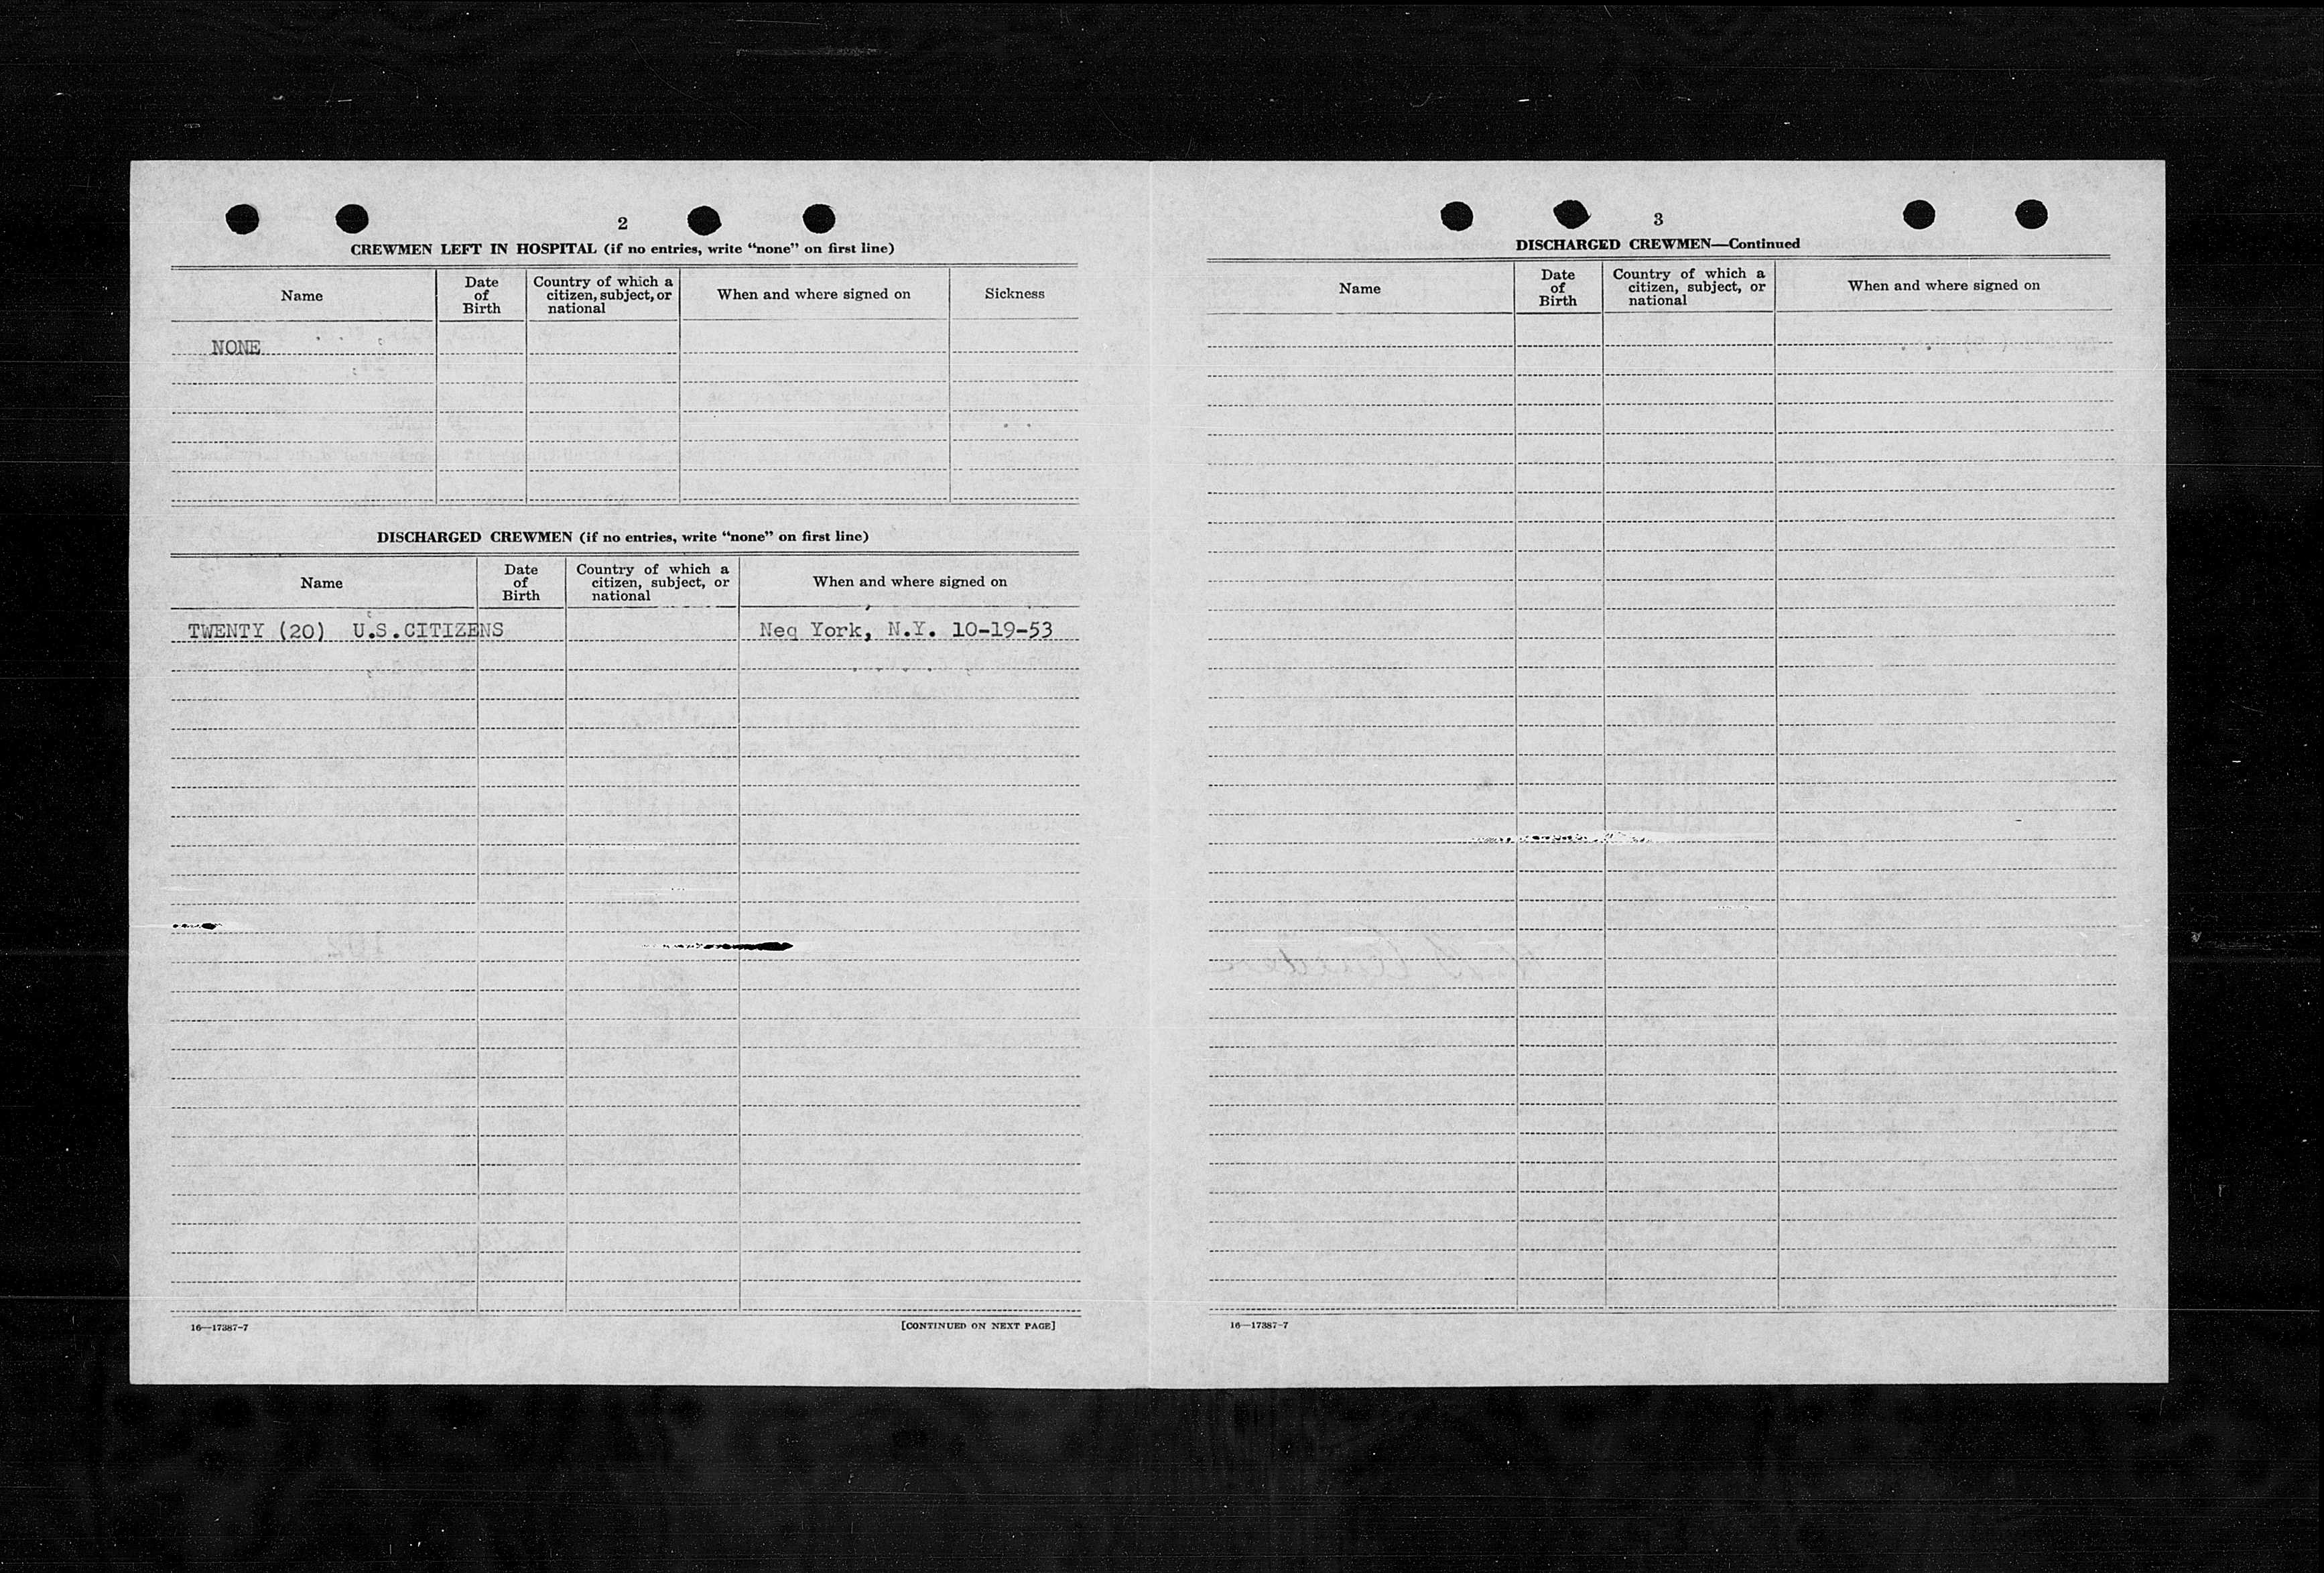 2
CREWMEN LEFT IN HOSPITAL (if no entries, write "none" on first line)
Name
Date
of
Birth
Country of which a
citizen, subject, or
national
When and where signed on
Sickness
NONE
DISCHARGED CREWMEN (if no entries, write "none" on first line)
Name
Date
of
Birth
Country of which a
citizen, subject, or
national
When and where signed on
TWENTY (20) U.S.CITIZENS
Neq York, N.Y. 10-19-53
16—17387-7
[CONTINUED ON NEXT PAGE]
3
DISCHARGED CREWMEN—Continued
Name
Date
of
Birth
Country of which a
citizen, subject, or
national
When and where signed on
16—17387-7